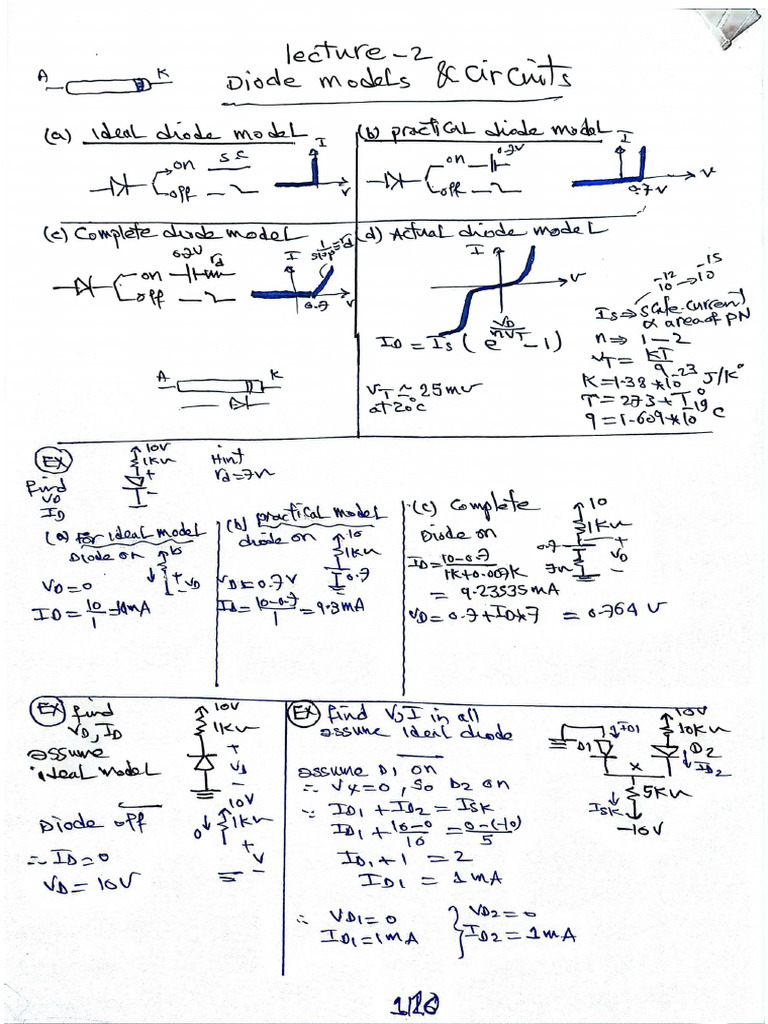 lecture-2
Diode models & circuits
A K
(a) Ideal diode model
on s.c
off
I
V
(b) practical diode model
on 0.7V
off
I
V
0.7V
(c) Complete diode model
0.7V rd
on
off
I
1/slope=rd
0.7 V
(d) Actual diode model
I
V
ID = Is ( e^(VD/nVT) -1)
VT ≈ 25mV
at 20°c
10^-12 → 10^-15
Is ⇒ scale-current
α area of PN
n ⇒ 1-2
VT = KT/q
K=1.38*10^-23 J/K°
T=273+T°
q=1.609*10^-19 C
A K
EX
find
VD
ID
10V
1KΩ
+
-
Hint
rd=7Ω
(a) for ideal model
Diode on
10
+
VD
-
VD=0
ID=10/1=10mA
(b) practical model
diode on
10
1KΩ
0.7
VD=0.7V
ID=10-0.7/1=9.3mA
(c) Complete
Diode on
10
1KΩ
0.7
7Ω
+
VD
-
ID=10-0.7/1K+0.007K
= 9.23535mA
VD=0.7+ID*7 = 0.764 V
EX find
VD,ID
assume
ideal model
10V
1KΩ
+
VD
-
Diode off
10V
1KΩ
0
+
V
-
∴ ID=0
VD=10V
EX find V,I in all
assume ideal diode
10V
10KΩ
ID1
D1
D2
ID2
X
5KΩ
I5K
-10V
assume D1 on
∴ Vx=0, so D2 on
∵ ID1+ID2=I5K
ID1+10-0/10=0-(-10)/5
ID1+1 = 2
ID1 = 1mA
∴ VD1=0
ID1=1mA
VD2=0
ID2=1mA
1/10